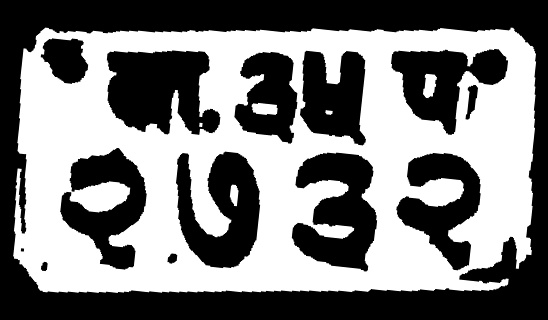 बा.३५ प
२७३२